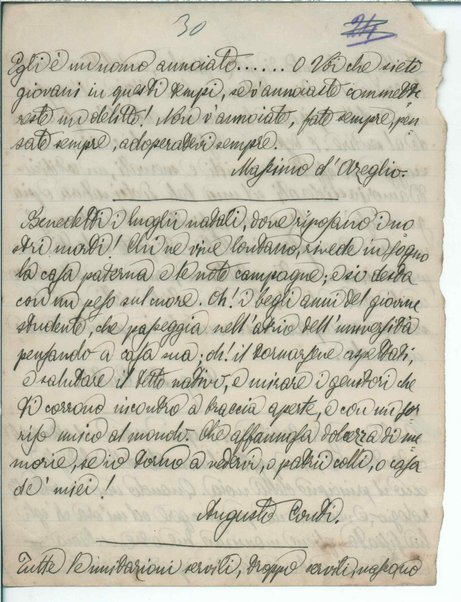 30
Egli è un uomo annoiato...... O Voi che siete
giovani in questi tempi, se v'annoiaste commett-
reste un delitto! Non v'annoiate, fate sempre, pen
sate sempre, adoperatevi sempre.
Massimo d'Azeglio.
Benedetti i luoghi natali, dove riposano i no
stri morti! Chi ne vive lontano, rivede in sogno
la casa paterna e le note campagne; e si desta
con un peso sul cuore. Oh! i begli anni del giovine
studente, che passeggia nell'atrio dell'università
pensando a casa sua; oh! il tornarsene aspettati,
e salutare il tetto nativo, e mirare i genitori che
ti corrono incontro a braccia aperte, e con un sor
riso unico al mondo. Che affannosa dolcezza di me
morie, se io torno a vedervi, o patrii colli, o casa
de' miei!
Augusto Conti.
Tutte le imitazioni servili, troppo servili, nascono